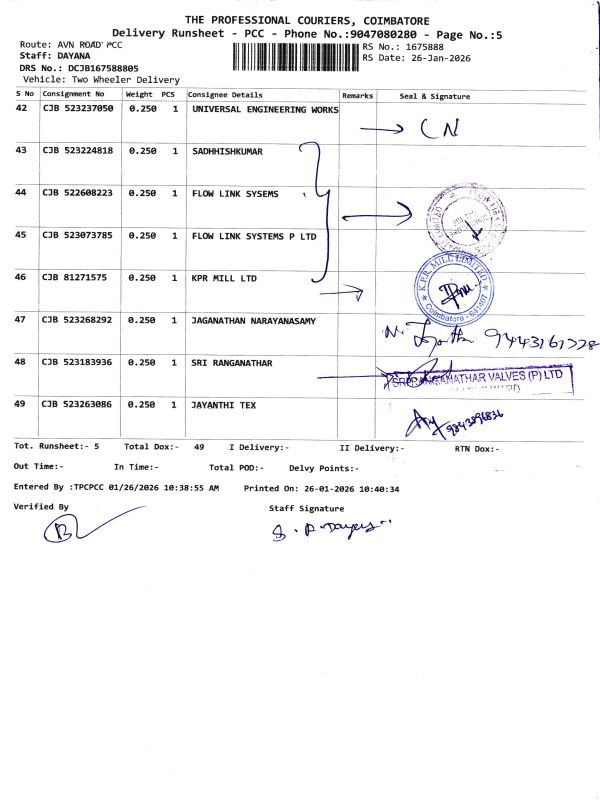 THE PROFESSIONAL COURIERS, COIMBATORE
Delivery Runsheet - PCC - Phone No.:9047080280 - Page No.:5
Route: AVN ROAD PCC
RS No.: 1675888
Staff: DAYANA
RS Date: 26-Jan-2026
DRS No.: DCJB167588805
Vehicle: Two Wheeler Delivery
S No Consignment No Weight PCS Consignee Details Remarks Seal & Signature
42 CJB 523237050 0.250 1 UNIVERSAL ENGINEERING WORKS CN
43 CJB 523224818 0.250 1 SADHHISHKUMAR
44 CJB 522608223 0.250 1 FLOW LINK SYSEMS
45 CJB 523073785 0.250 1 FLOW LINK SYSTEMS P LTD
46 CJB 81271575 0.250 1 KPR MILL LTD
K.P.R. MILL LIMITED
Coimbatore - 641 407
47 CJB 523268292 0.250 1 JAGANATHAN NARAYANASAMY
9443161728
48 CJB 523183936 0.250 1 SRI RANGANATHAR
SRI RANGANATHAR VALVES (P) LTD
49 CJB 523263086 0.250 1 JAYANTHI TEX
9843896836
Tot. Runsheet:- 5 Total Dox:- 49 I Delivery:- II Delivery:- RTN Dox:-
Out Time:- In Time:- Total POD:- Delvy Points:-
Entered By :TPCPCC 01/26/2026 10:38:55 AM Printed On: 26-01-2026 10:40:34
Verified By Staff Signature